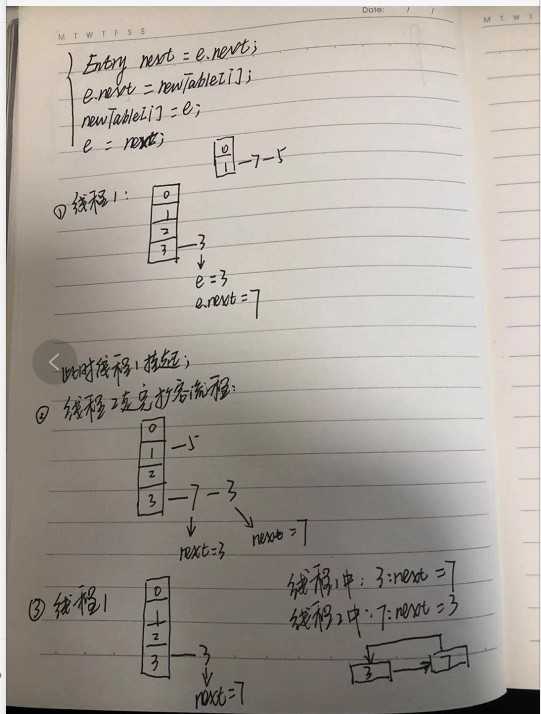 Date: / /
M T W T F S S
M T W T
Entry next = e.next;
e.next = newTable[i];
newTable[i] = e;
e = next;
0
1 — 7 — 5
① 线程1:
0
1
2
3 — 3
e = 3
e.next = 7
此时线程1挂起;
② 线程2走完扩容流程:
0
1 — 5
2
3 — 7 — 3
next=3 next=7
③ 线程1
0
1
2
3 — 3
next=7
线程1中: 3:next = 7
线程2中: 7:next = 3
3 7